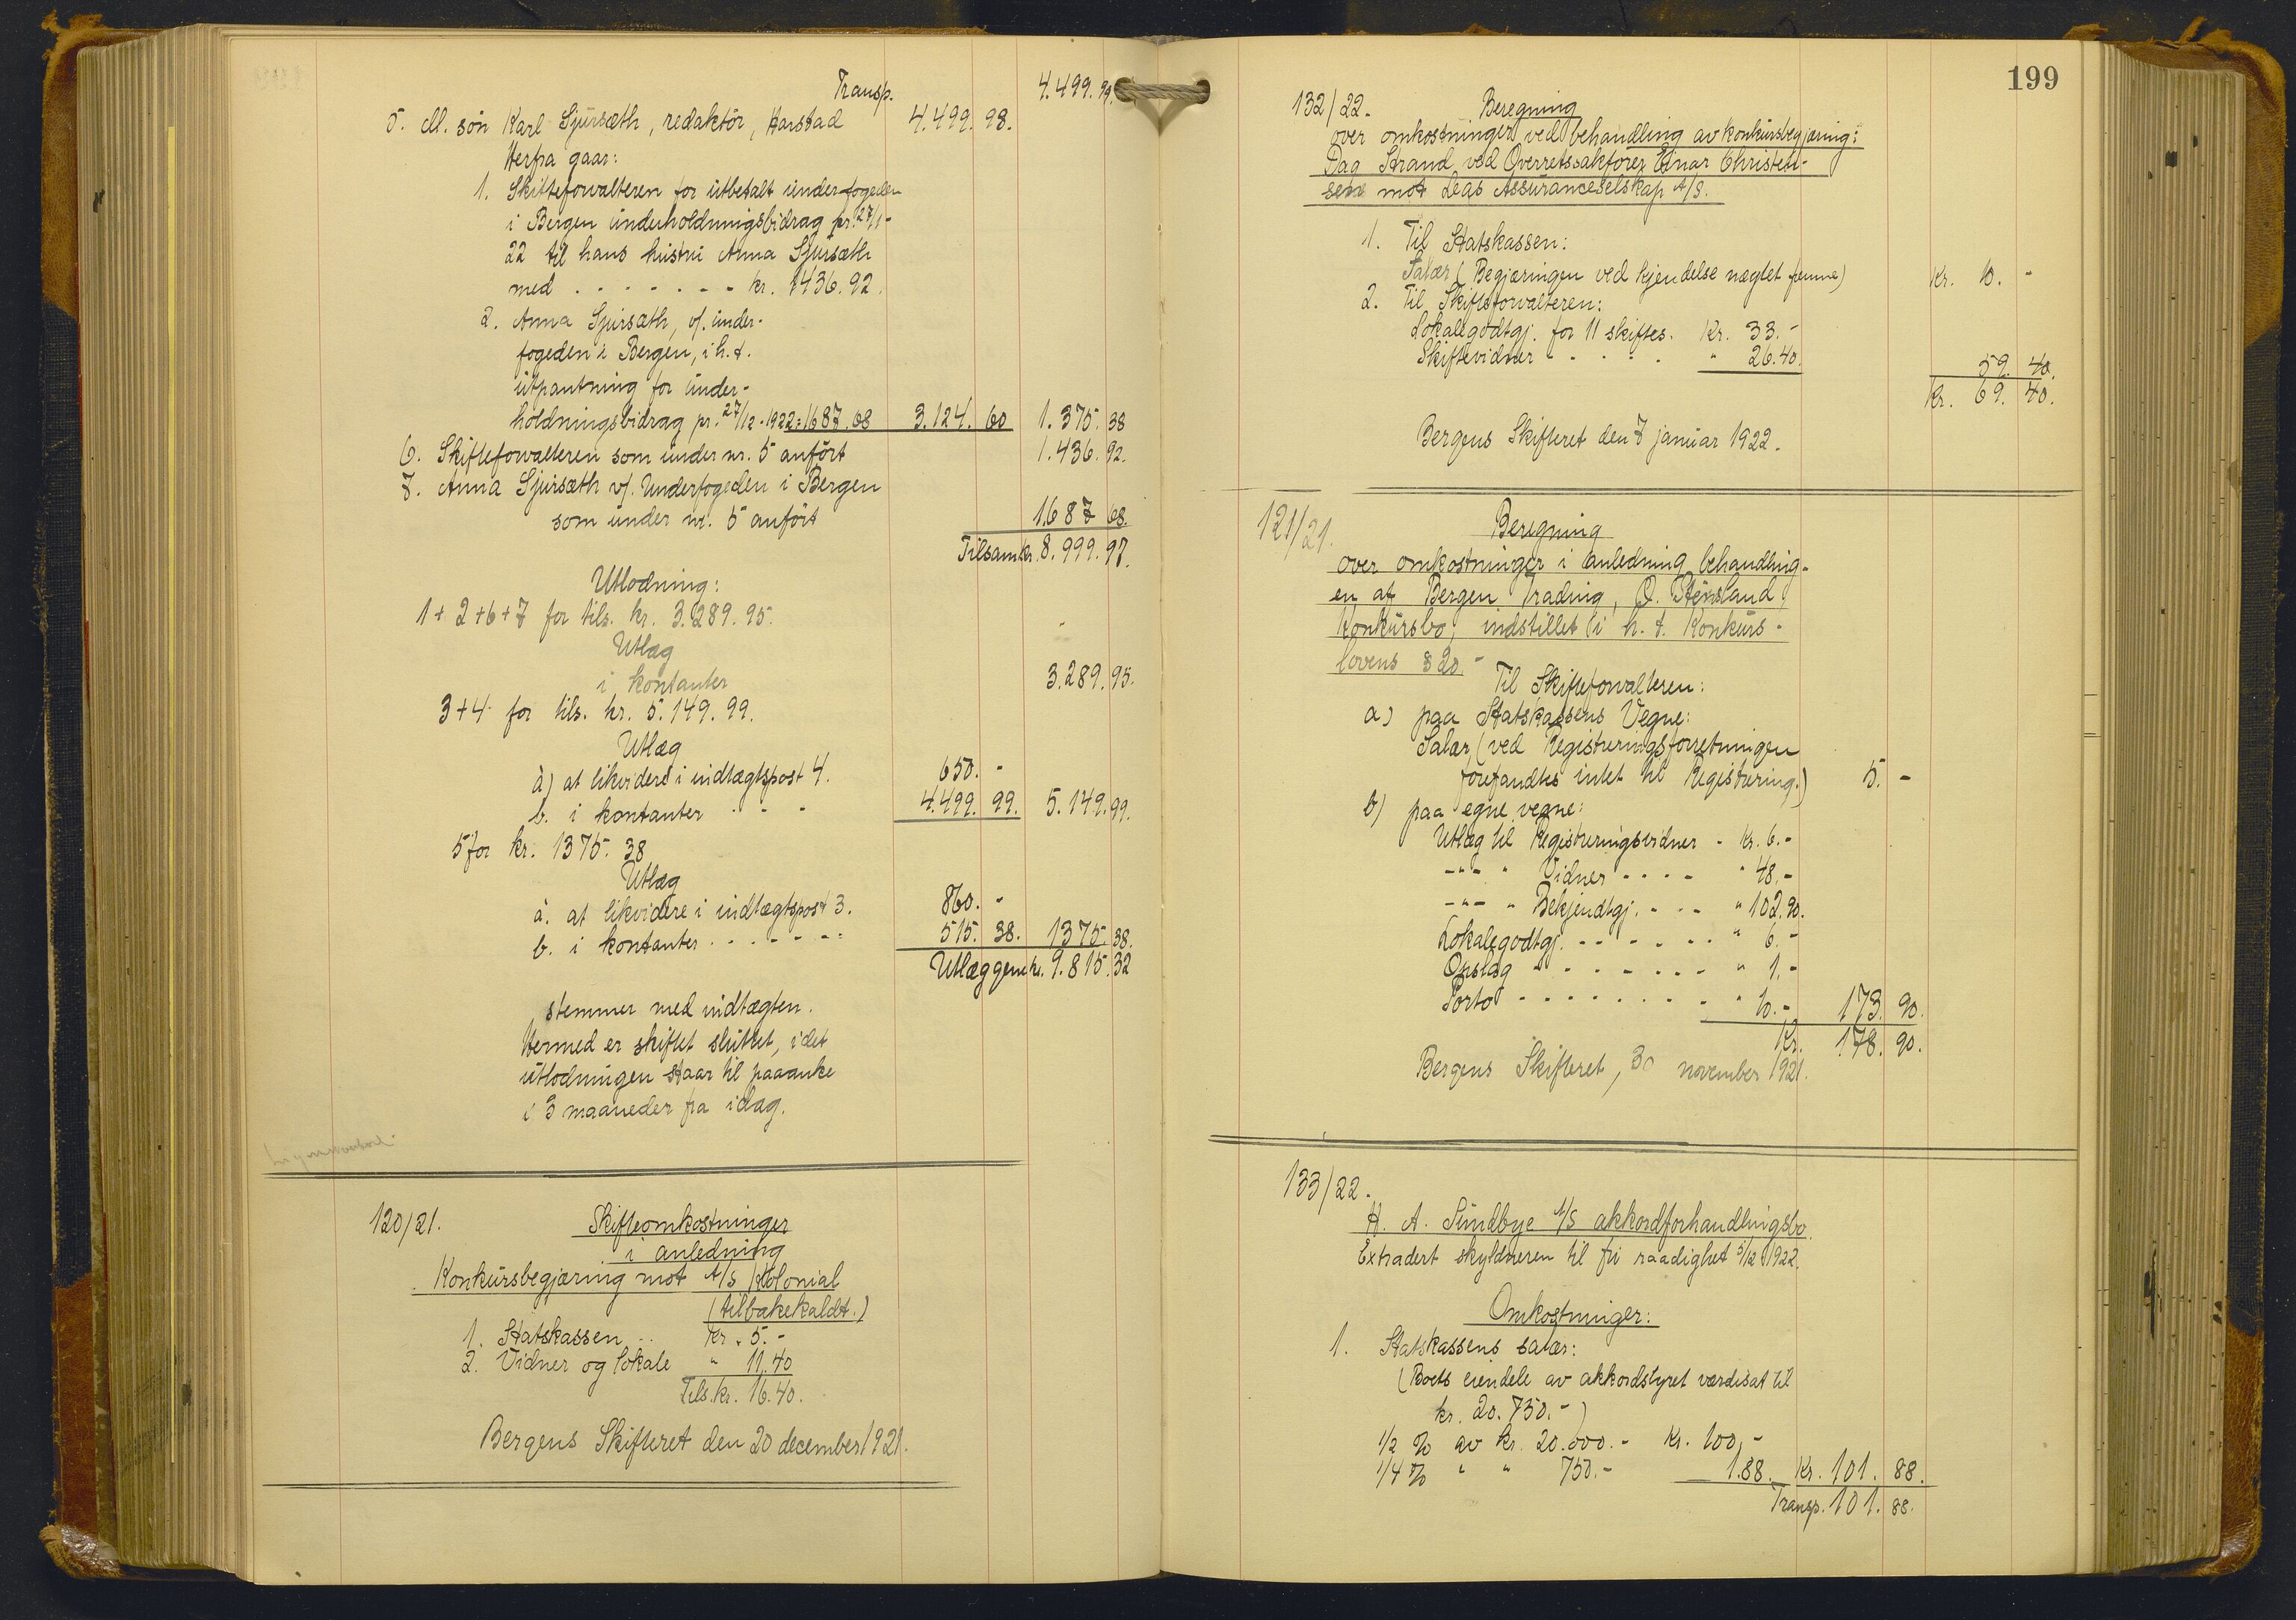 Transp. 4.499.99.
5. M. søn Karl Sjursæth, redaktör, Harstad 4.499.98.
Herfra gaar:
1. Skifteforvalteren for utbetalt underfogeden
i Bergen underholdningsbidrag pr. 27/1-
22 til hans hustru Anna Sjursæth
med . . . . . . . kr. 1436.92.
2. Anna Sjursæth, v/. under-
fogeden i Bergen, i h. t.
utpantning for under-
holdningsbidrag pr. 27/12-1922: 1687.68 3.124.60 1.375.38
6. Skifteforvalteren som under nr. 5 anfört 1.436.92.
7. Anna Sjursæth v/. Underfogeden i Bergen
som under nr. 5 anfört 1.687.68.
Tilsam. kr. 8.999.97.
Utlodning:
1+2+6+7 for tils. kr. 3.289.95.
Utlæg
i kontanter 3.289.95.
3+4 for tils. kr. 5.149.99.
Utlæg
a) at likvidere i indtægtspost 4. 650.-
b. i kontanter . - - 4.499.99. 5.149.99.
5 for kr. 1375.38
Utlæg
a. at likvidere i indtægtspost 3. 860.-
b. i kontanter . . - - - - 515.38. 1375.38.
Utlæggene kr. 9.815.32
stemmer med indtægten.
Hermed er skiftet sluttet, idet
utlodningen staar til paaanke
i 3 maaneder fra idag.
120/21. Skifteomkostninger
i anledning
Konkursbegjæring mot A/S Kolonial
(tilbakekaldt.)
1. Statskassen .. Kr. 5.-
2. Vidner og lokale " 11.40
Tils. kr. 16.40.
Bergens Skifteret den 20 december 1921.
199
132/22. Beregning
over omkostninger ved behandling av konkursbegjæring:
Dag Strand ved Overretssakförer Einar Christen-
sen mot Leas Assuranceselskap A/S.
1. Til Statskassen:
Salær (Begjæringen ved kjendelse nægtet fremme) Kr. 10.-
2. Til Skifteforvalteren:
Lokalegodtgj. for 11 skiftes. Kr. 33.-
Skiftevidner - - . . . " 26.40. 59.40.
Kr. 69.40.
Bergens Skifteret den 7 januar 1922.
121/21. Beregning
over omkostninger i anledning behandling-
en af Bergen Trading, O. Stensland
Konkursbo, indstillet i h. t. Konkurs-
lovens § 20.-
Til Skifteforvalteren:
a) paa Statskassens Vegne:
Salær (ved Registreringsforretningen
forefandtes intet til Registrering.) 5.-
b) paa egne vegne:
Utlæg til Registreringsvidner - Kr. 6.-
-"- " Vidner - - - - " 48.-
-"- " Bekjendtgj. - - - " 102.90.
Lokalegodtgj. - - - - - - " 6.-
Opslag - - - - - - - " 1.-
Porto - - - - - - - - " 10.- 173.90.
Kr. 178.90.
Bergens Skifteret, 30 november 1921.
133/22.
H. A. Sundbye A/S akkordforhandlingsbo.
Extradert skyldneren til fri raadighet 5/12 1922.
Omkostninger:
1. Statskassens salær:
(Boets eiendele av akkordstyret værdisat til
kr. 20.750.-)
1/2 % av kr. 20.000.- Kr. 100,-
1/4 % " " 750.- 1.88. Kr. 101.88.
Transp. 101.88.